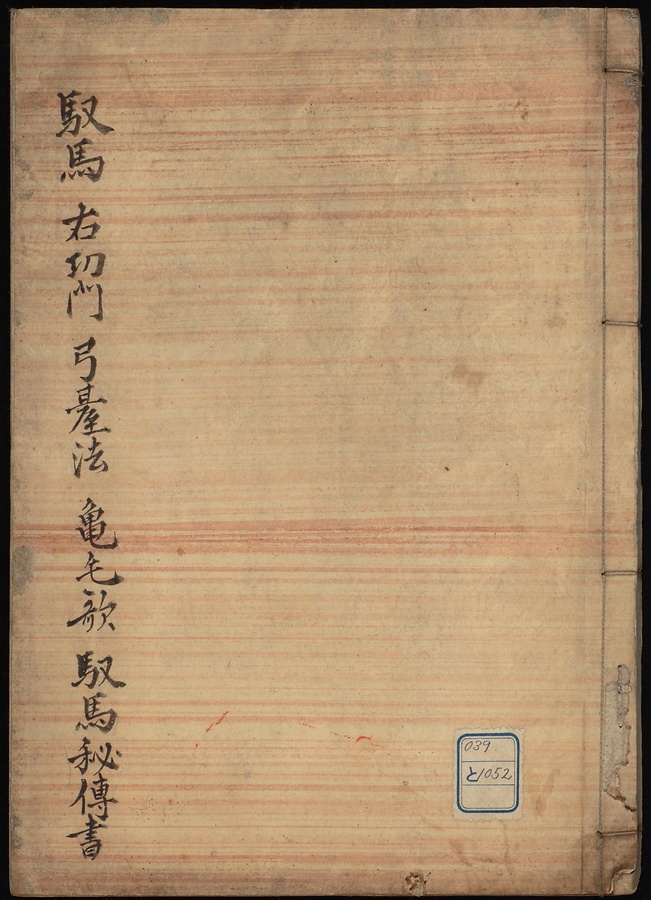 馭馬 右切門 弓臺法 亀毛歌 馭馬秘傳書
039
と1052